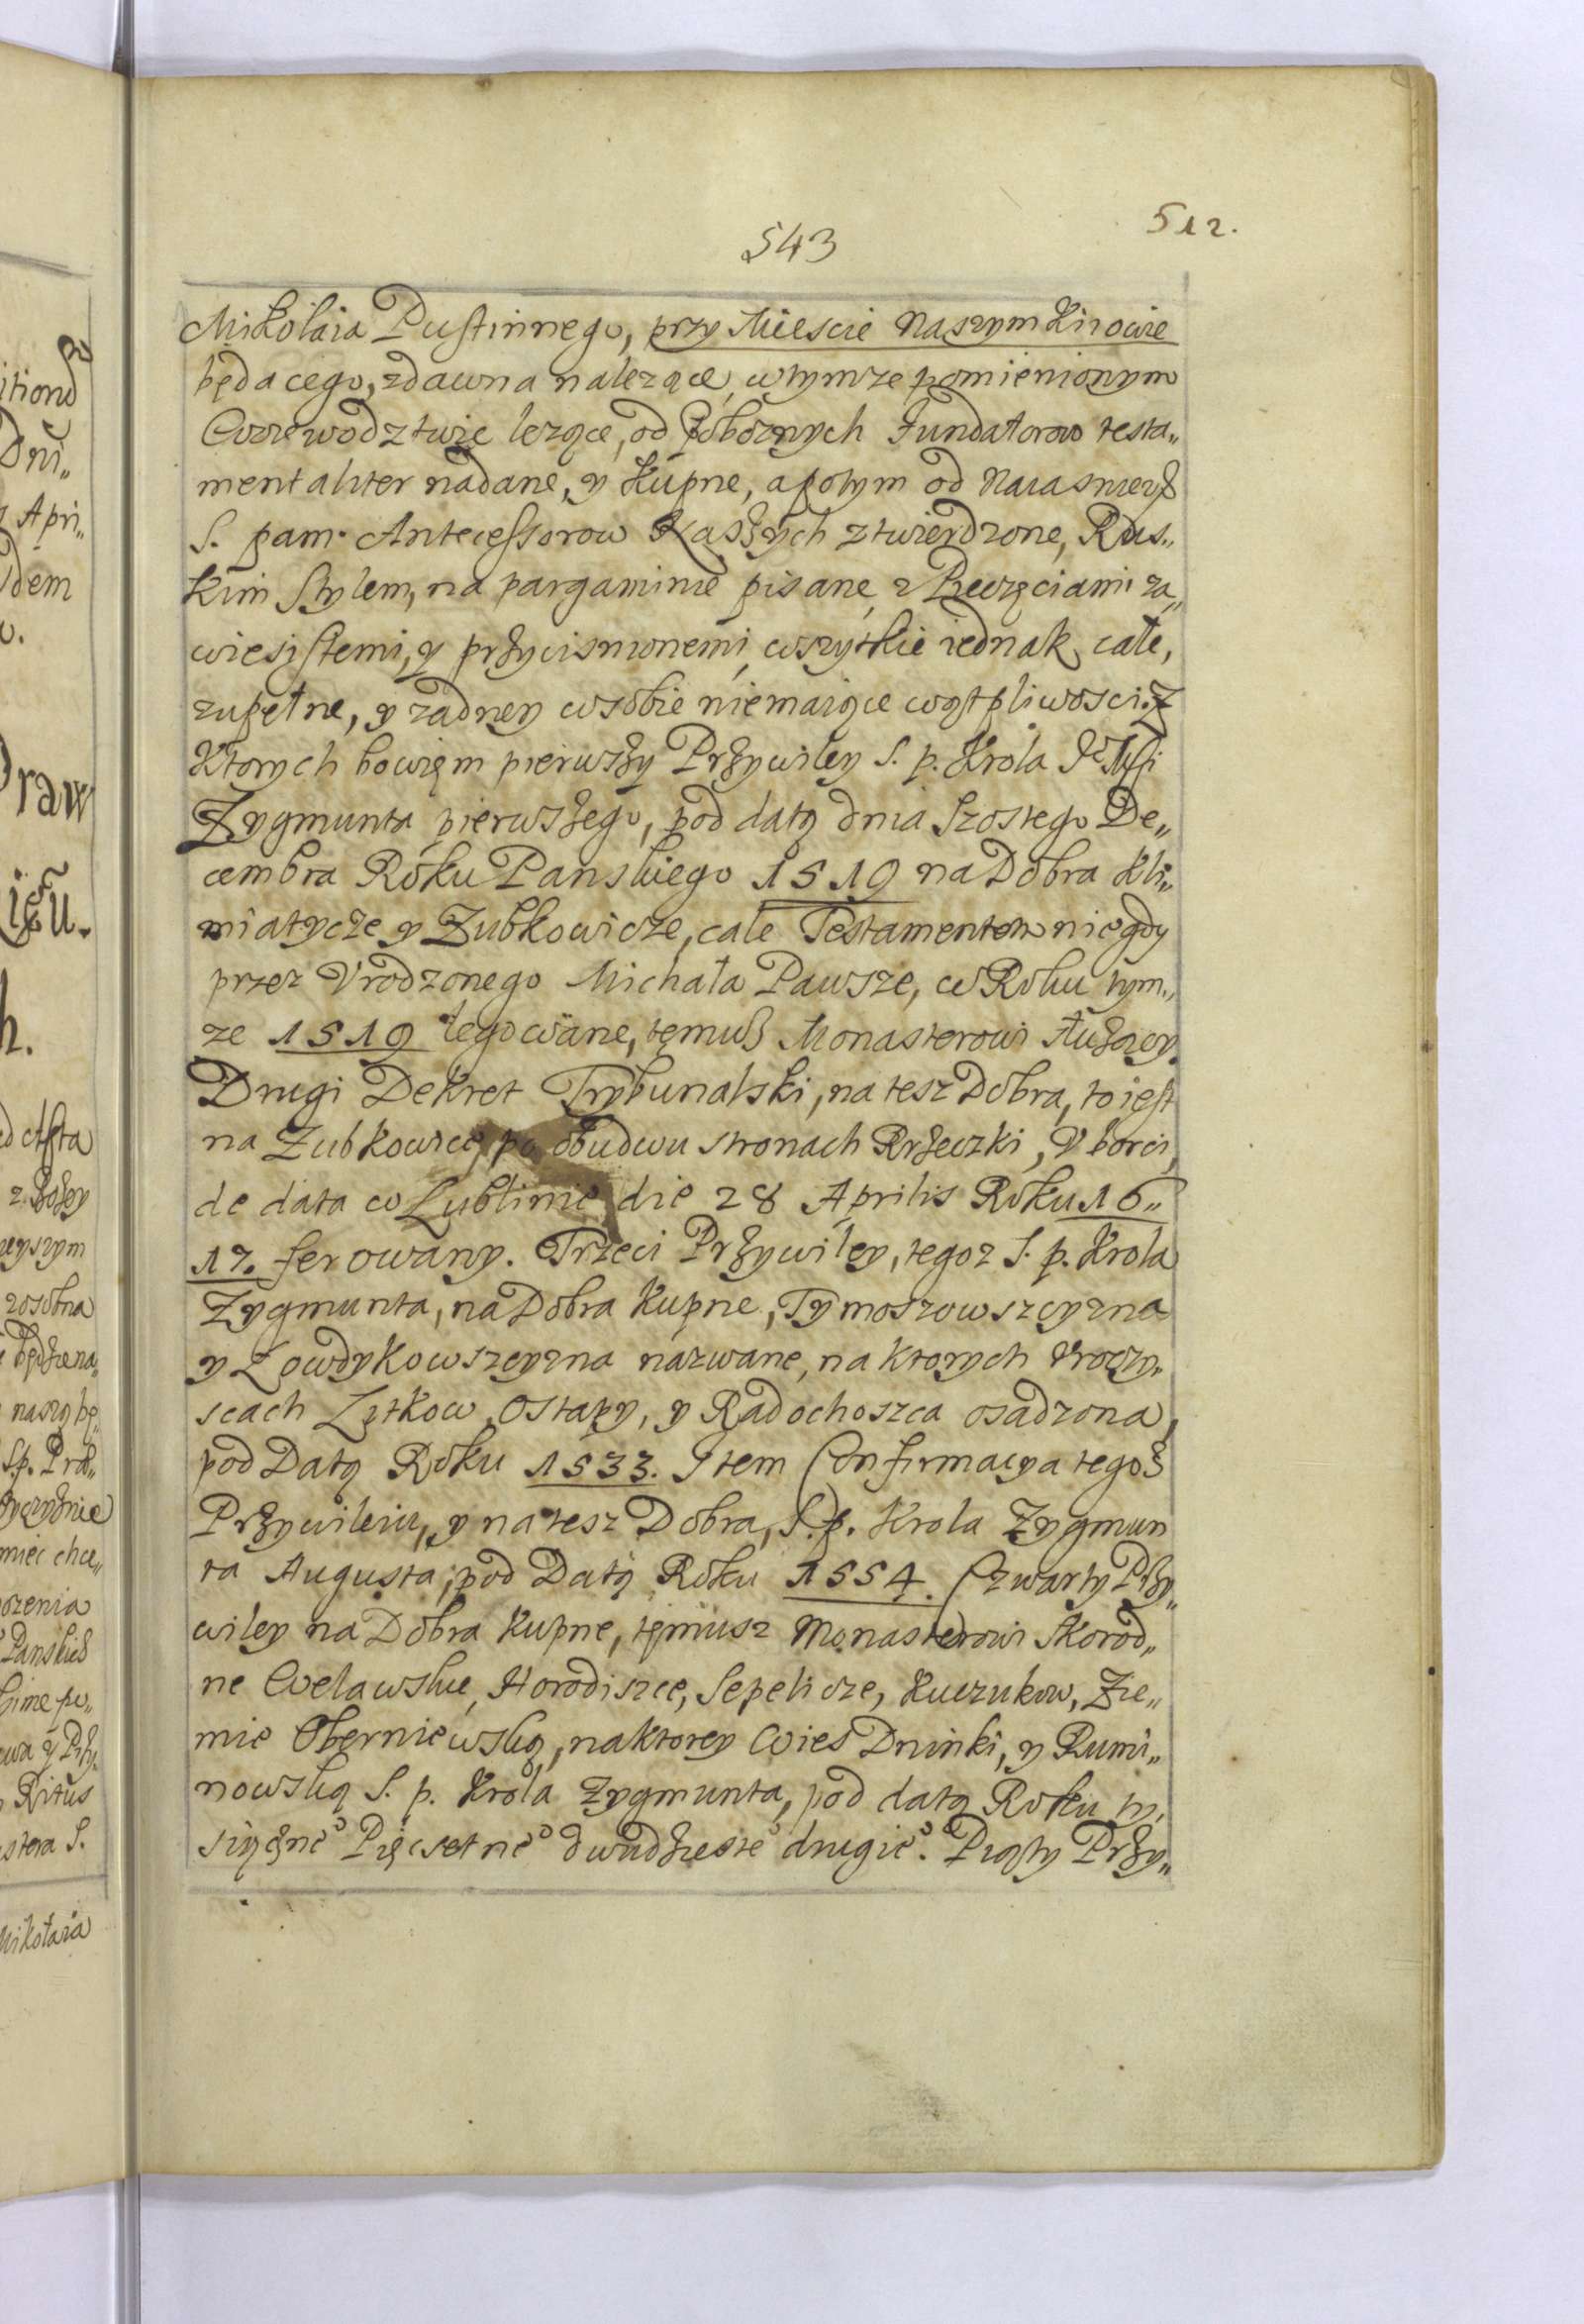 543
512.
Mikołaia Pustinnego, przy Miescie Naszym Kiiowie
będacego, zdawna nalezące, w tymze pomienionym
Woiewodztwie lezące, od Pobornych Fundatorow testa„
mentaliter nadane, y Kupne, a potym od Naiasnieysz
S. pam. Antecessorow Naszych ztwierdzone, Rus„
kim Stylem, na pargaminie pisane, z Pieczęciami za„
wiesistemi, y przycisnionemi, wszytkie iednak, całe,
zupełne, y zadney wsobie niemaiące wątpliwosci. Z
Ktorych bowięm pierwszy Przywiley S. p. Krola JeMsi
Zygmunta pierwszego, pod datą dnia Szostego De„
cembra Roku Panskiego 1519 na Dobra Kli„
miatycze y Zubkowicze, cale Testamentem niegdy
przez Vrodzonego Michała Pawsze, w Roku tym„
ze 1519 legowane, temusz Monasterowi służący.
Drugi Dekret Trybunalski, na tesz Dobra, to iest
na Zubkowice, po obudwu stronach Rrzeczki, V borci,
de data w Lublinie die 28 Aprilis Roku 16„
17. ferowany. Trzeci Przywiley, tegoz S. p. Krola
Zygmunta, na Dobra Kupne, Tymoszowszczyzna
y Łowdykowszczyzna nazwane, na ktorych Vroczy„
scach Zytkow, Ostapy, y Radochoszca osadzona,
pod Datą Roku 1533. Item Confirmacya tegosz
Przywileiu, y na tesz Dobra, S. p. Krola Zygmun
ta Augusta, pod Datą Roku 1554. Czwarty Przy„
wiley na Dobra Kupne, temusz Monasterowi Skorod„
ne Welawskie, Horodiszcze, Sepelicze, Kuczukow, Zie„
mie Oberniewską, na ktorey Wies Dninki, y Rumi„
nowską S. p. Krola Zygmunta, pod datą Roku ty„
siącznego Pięcsetnego dwudziestego drugiego. Piąty Przy„